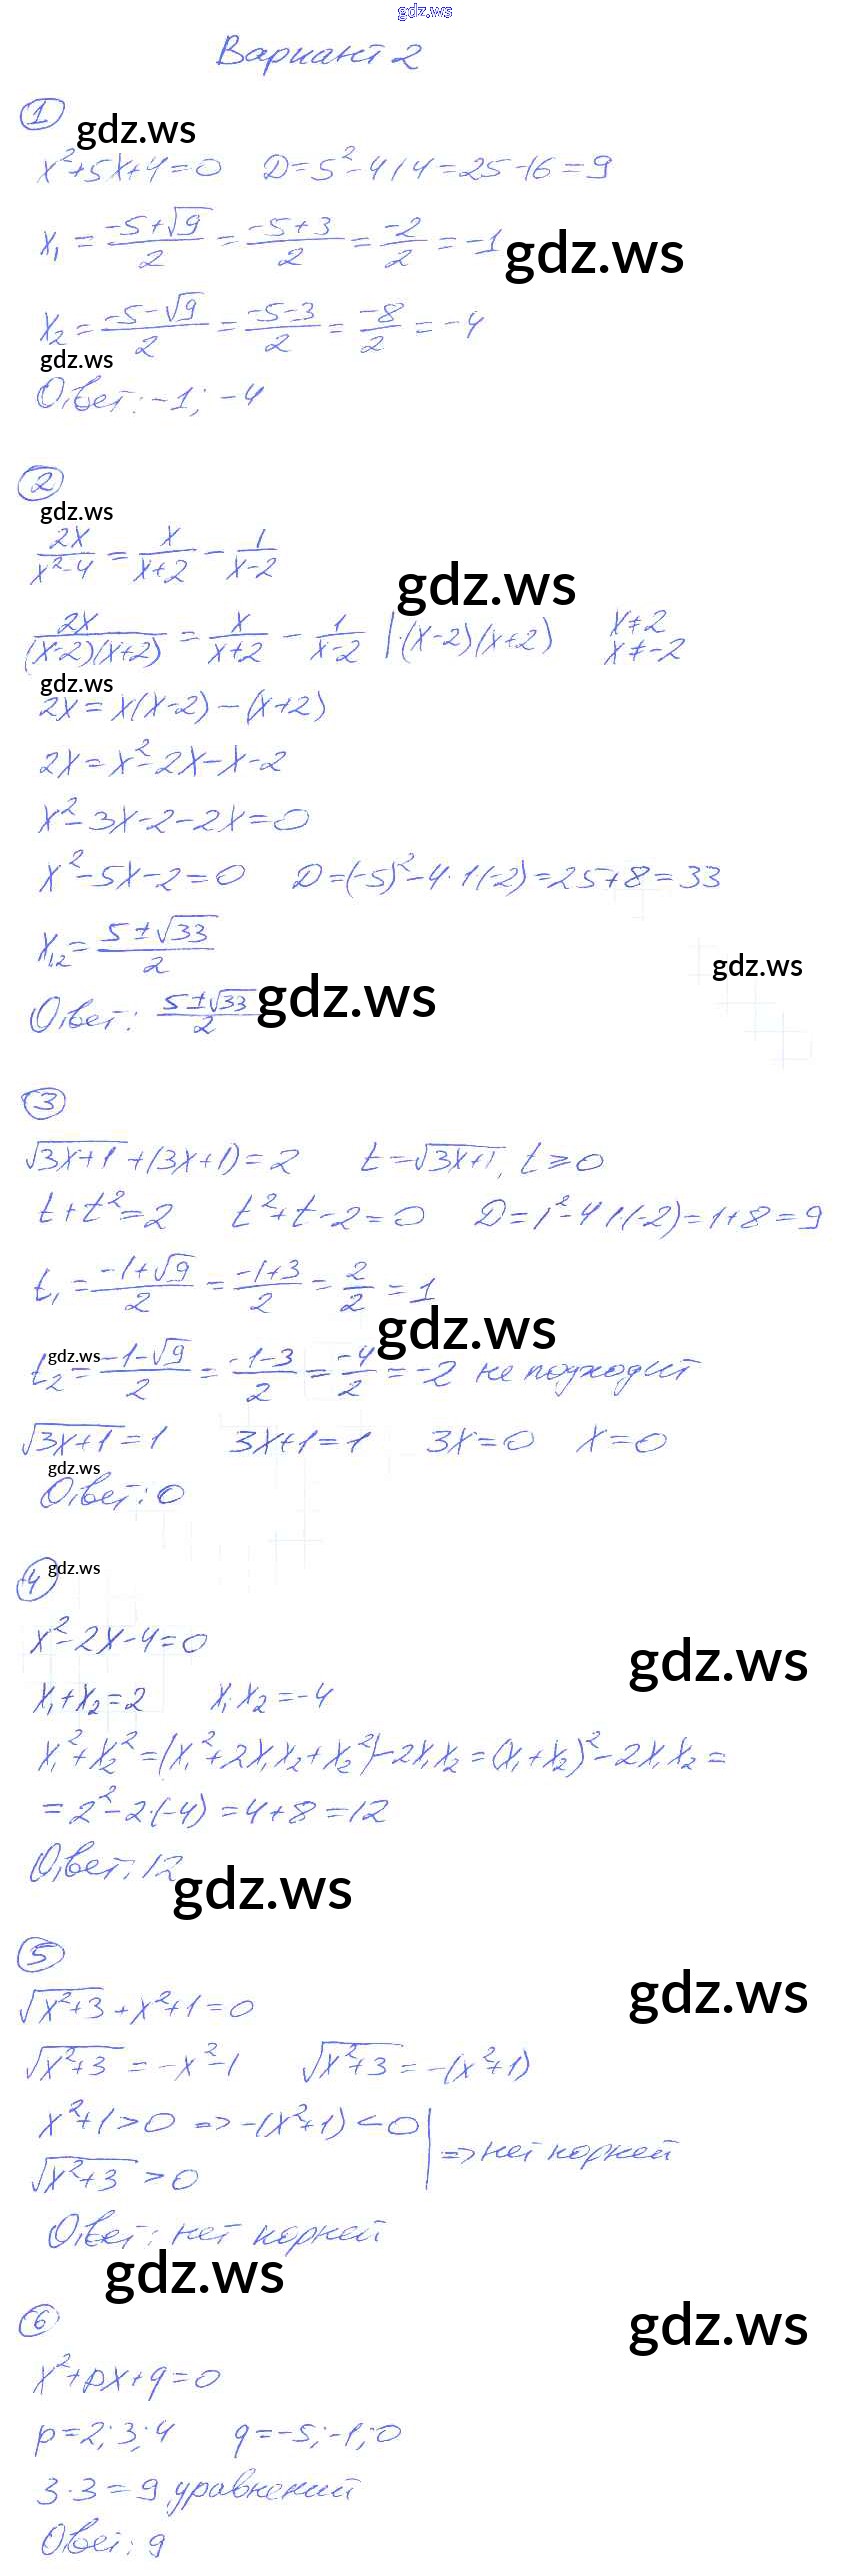 gdz.ws
Вариант 2
1
gdz.ws
x²+5x+4=0 D=5²-4·1·4=25-16=9
x₁ = (-5+√9)/2 = (-5+3)/2 = -2/2 = -1
gdz.ws
x₂ = (-5-√9)/2 = (-5-3)/2 = -8/2 = -4
gdz.ws
Ответ: -1; -4
2
gdz.ws
2x/(x²-4) = x/(x+2) - 1/(x-2)
gdz.ws
2x/((x-2)(x+2)) = x/(x+2) - 1/(x-2) |·(x-2)(x+2) x≠2 x≠-2
gdz.ws
2x = x(x-2) - (x+2)
2x = x²-2x-x-2
x²-3x-2-2x=0
x²-5x-2=0 D=(-5)²-4·1·(-2)=25+8=33
x₁,₂ = (5±√33)/2
gdz.ws
Ответ: (5±√33)/2
gdz.ws
3
√(3x+1) + (3x+1) = 2 t=√(3x+1), t≥0
t+t²=2 t²+t-2=0 D=1²-4·1·(-2)=1+8=9
t₁ = (-1+√9)/2 = (-1+3)/2 = 2/2 = 1
gdz.ws
gdz.ws
t₂ = (-1-√9)/2 = (-1-3)/2 = -4/2 = -2 не подходит
√(3x+1) = 1 3x+1=1 3x=0 x=0
gdz.ws
Ответ: 0
4
gdz.ws
x²-2x-4=0
gdz.ws
x₁+x₂=2 x₁·x₂=-4
x₁²+x₂²=(x₁²+2x₁x₂+x₂²)-2x₁x₂=(x₁+x₂)²-2x₁x₂=
=2²-2·(-4)=4+8=12
Ответ: 12
gdz.ws
5
gdz.ws
√(x²+3) + x²+1=0
√(x²+3) = -x²-1 √(x²+3) = -(x²+1)
x²+1>0 => -(x²+1)<0
√(x²+3) > 0 | => нет корней
Ответ: нет корней
gdz.ws
6
gdz.ws
x²+px+q=0
p=2; 3; 4 q=-5; -1; 0
3·3=9 уравнений
Ответ: 9